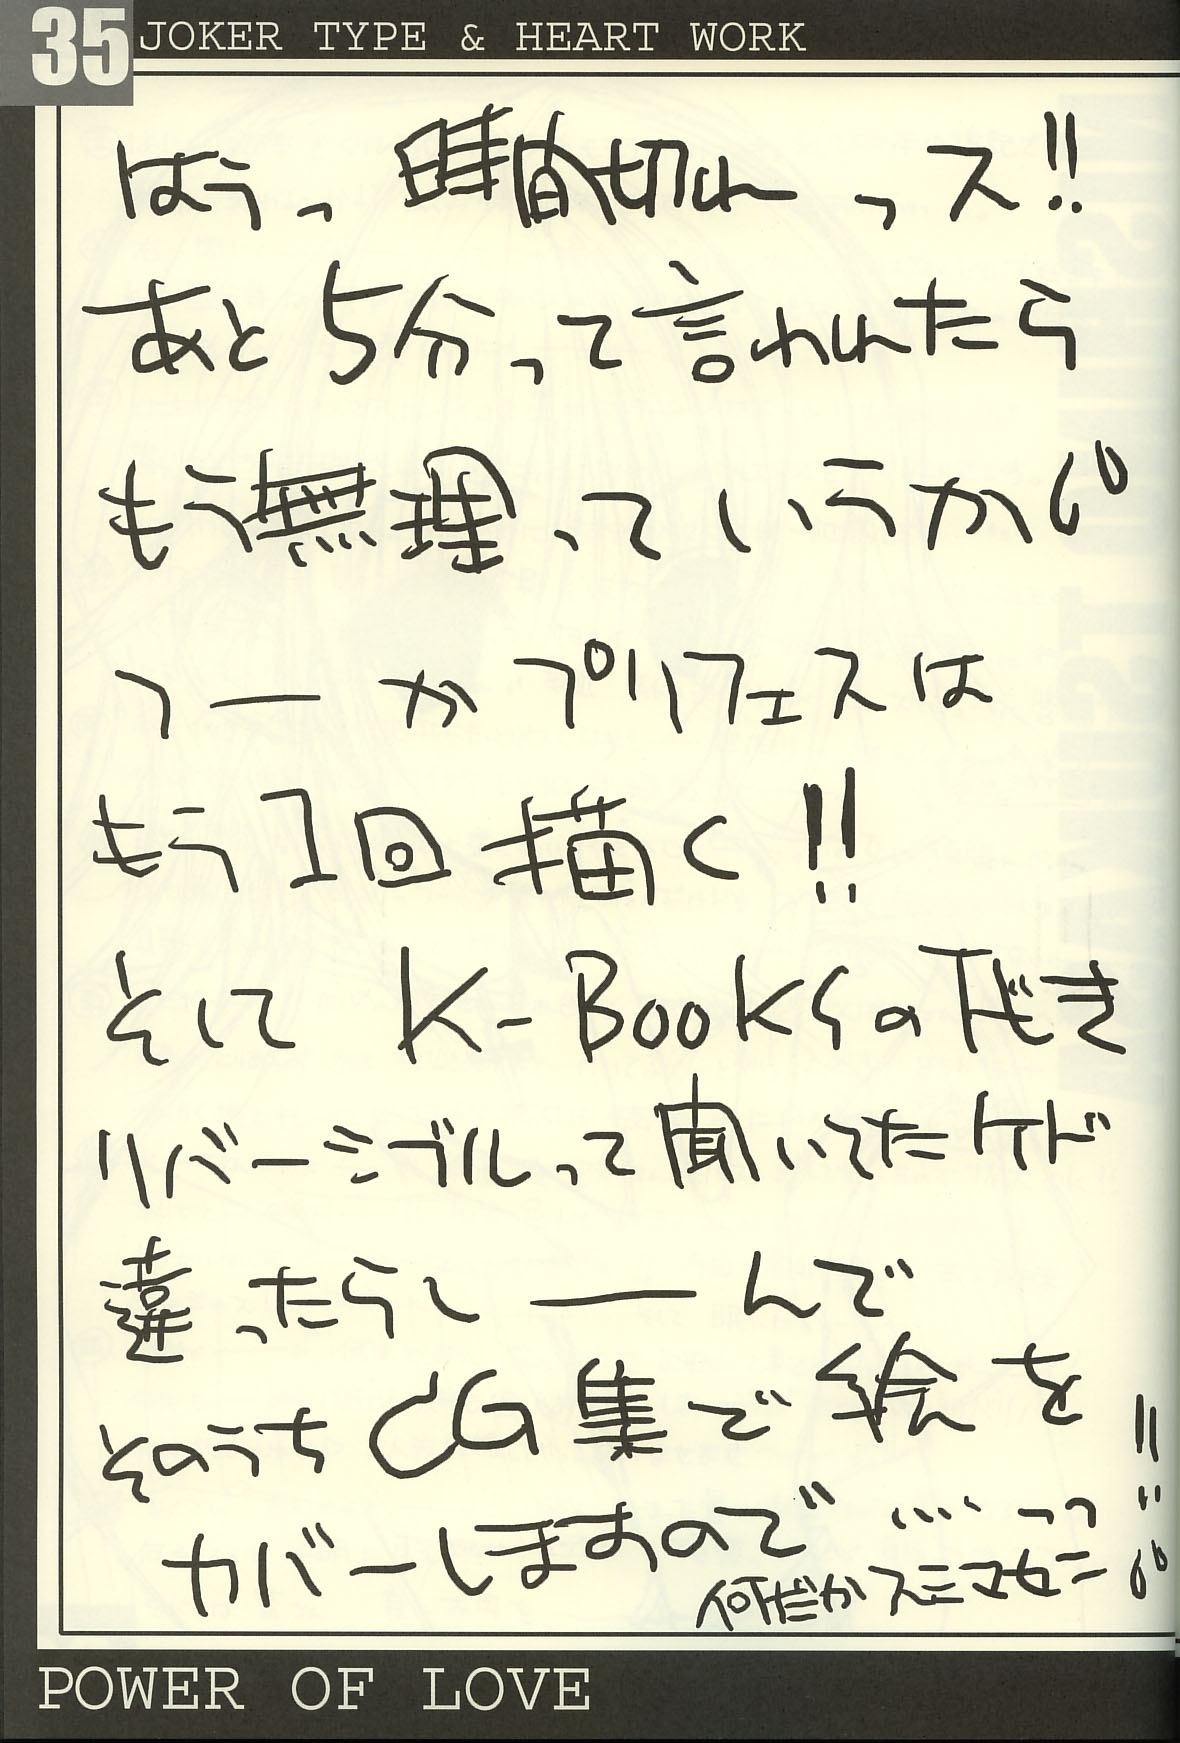 35 JOKER TYPE & HEART WORK
はうっ 時間切れっス!!
あと5分って言われたら
もう無理っていうか
つーかプリフェスは
もう1回描く!!
そして K-BOOKSの下だき
リバーシブルって聞いてたケド
違ったらしーーんで
そのうちCG集で絵を
カバーしますので…っつ!!
何だかスミマセン
POWER OF LOVE